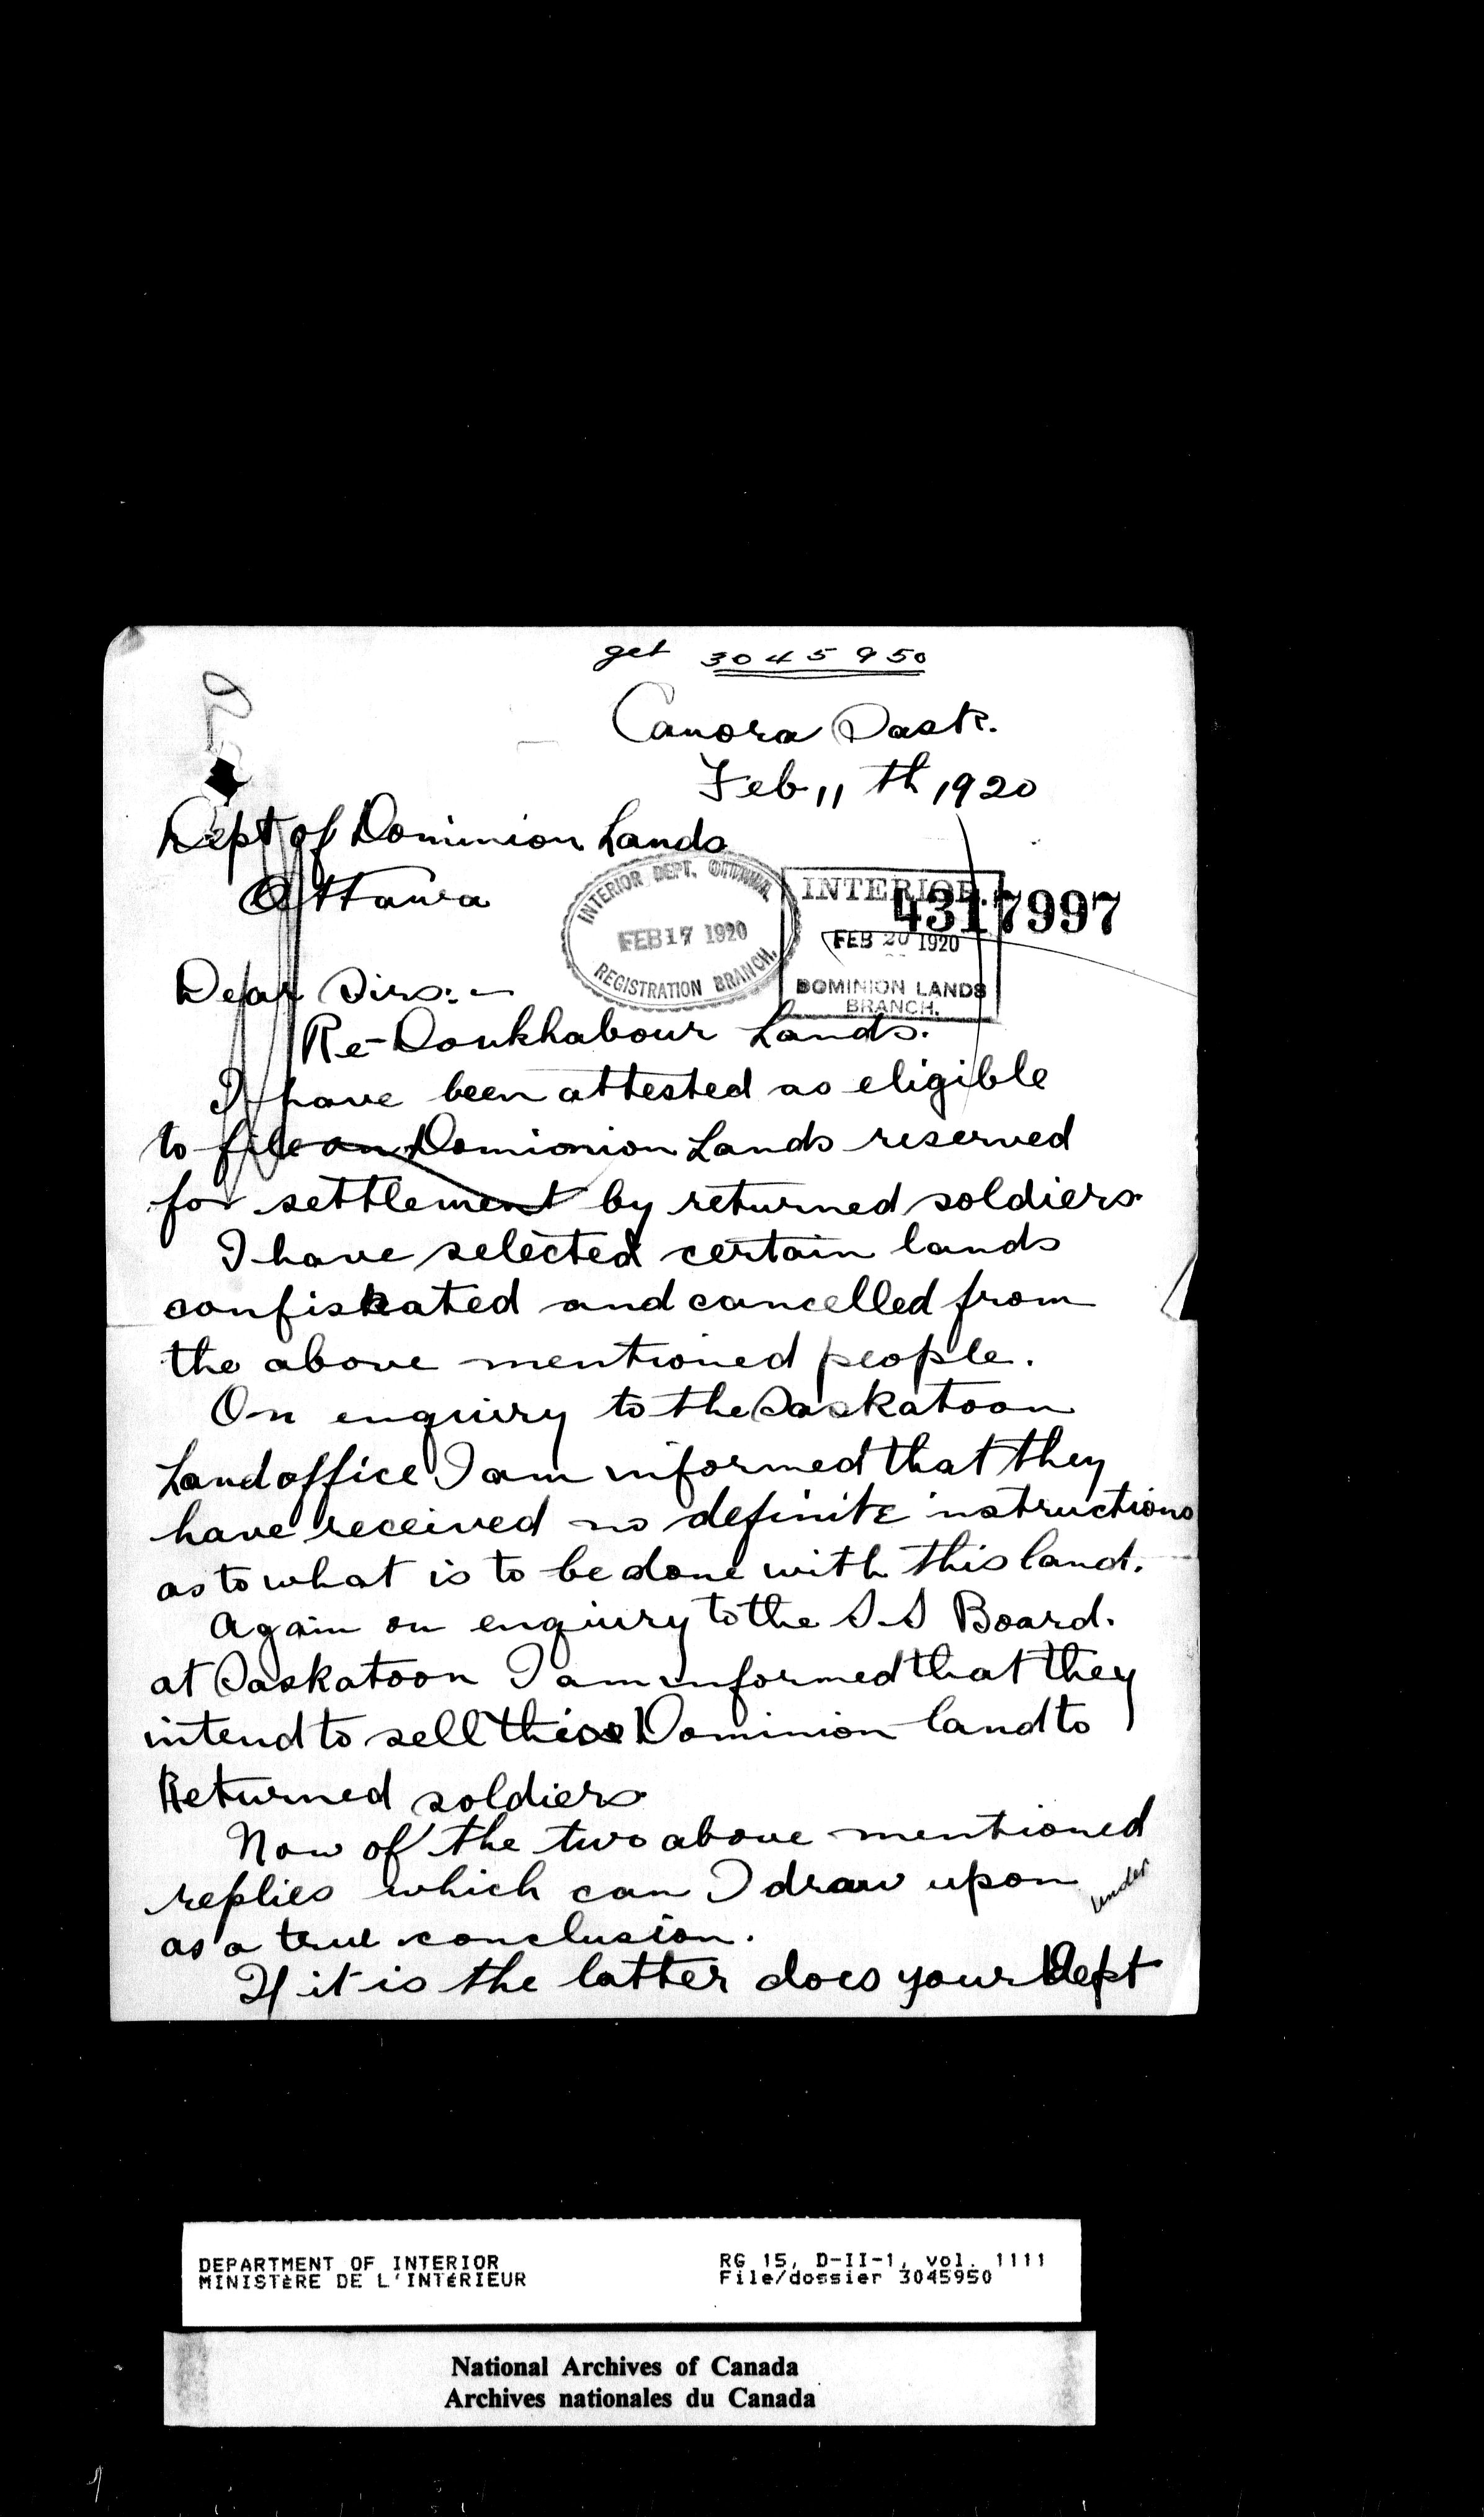 get 3045950
Canora Sask.
Feb 11th 1920
Dept of Dominion Lands
Ottawa
INTERIOR DEPT. OTTAWA.
FEB 17 1920
REGISTRATION BRANCH.
INTERIOR
4317997
FEB 20 1920
DOMINION LANDS
BRANCH.
Dear Sirs:-
Re-Doukhabour Lands.
I have been attested as eligible
to file on Domionion Lands reserved
for settlement by returned soldiers
I have selected certain lands
confiskated and cancelled from
the above mentioned people.
On enquiry to the Saskatoon
Land office I am informed that they
have received no definite instructions
as to what is to be done with this land.
Again on enquiry to the S S Board.
at Saskatoon I am informed that they
intend to sell this Dominion land to
Returned soldiers
Now of the two above mentioned
replies which can I draw upon
under
as a true conclusion.
If it is the latter does your Dept
DEPARTMENT OF INTERIOR
MINISTÈRE DE L'INTÉRIEUR
RG 15, D-II-1, vol. 1111
File/dossier 3045950
National Archives of Canada
Archives nationales du Canada